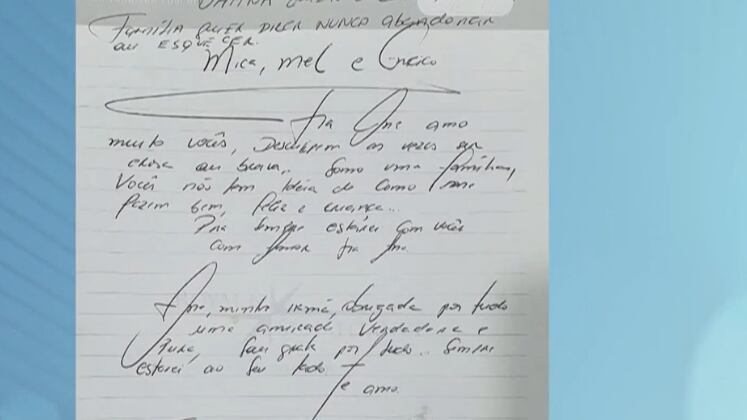 Família quer dizer nunca abandonar
ou esquecer.
Mica, Mel e
amo
muito vocês, Desculpem as vezes ser
chata ou brava.. Somos uma família,
Vocês não tem ideia de como me
fazem bem, feliz e criança...
Pra sempre estarei com vocês
com
minha irmã, obrigada por tudo
uma amizade Verdadeira e
Pura, Sou grata por tudo.. Sempre
estarei ao seu lado.
Te amo.